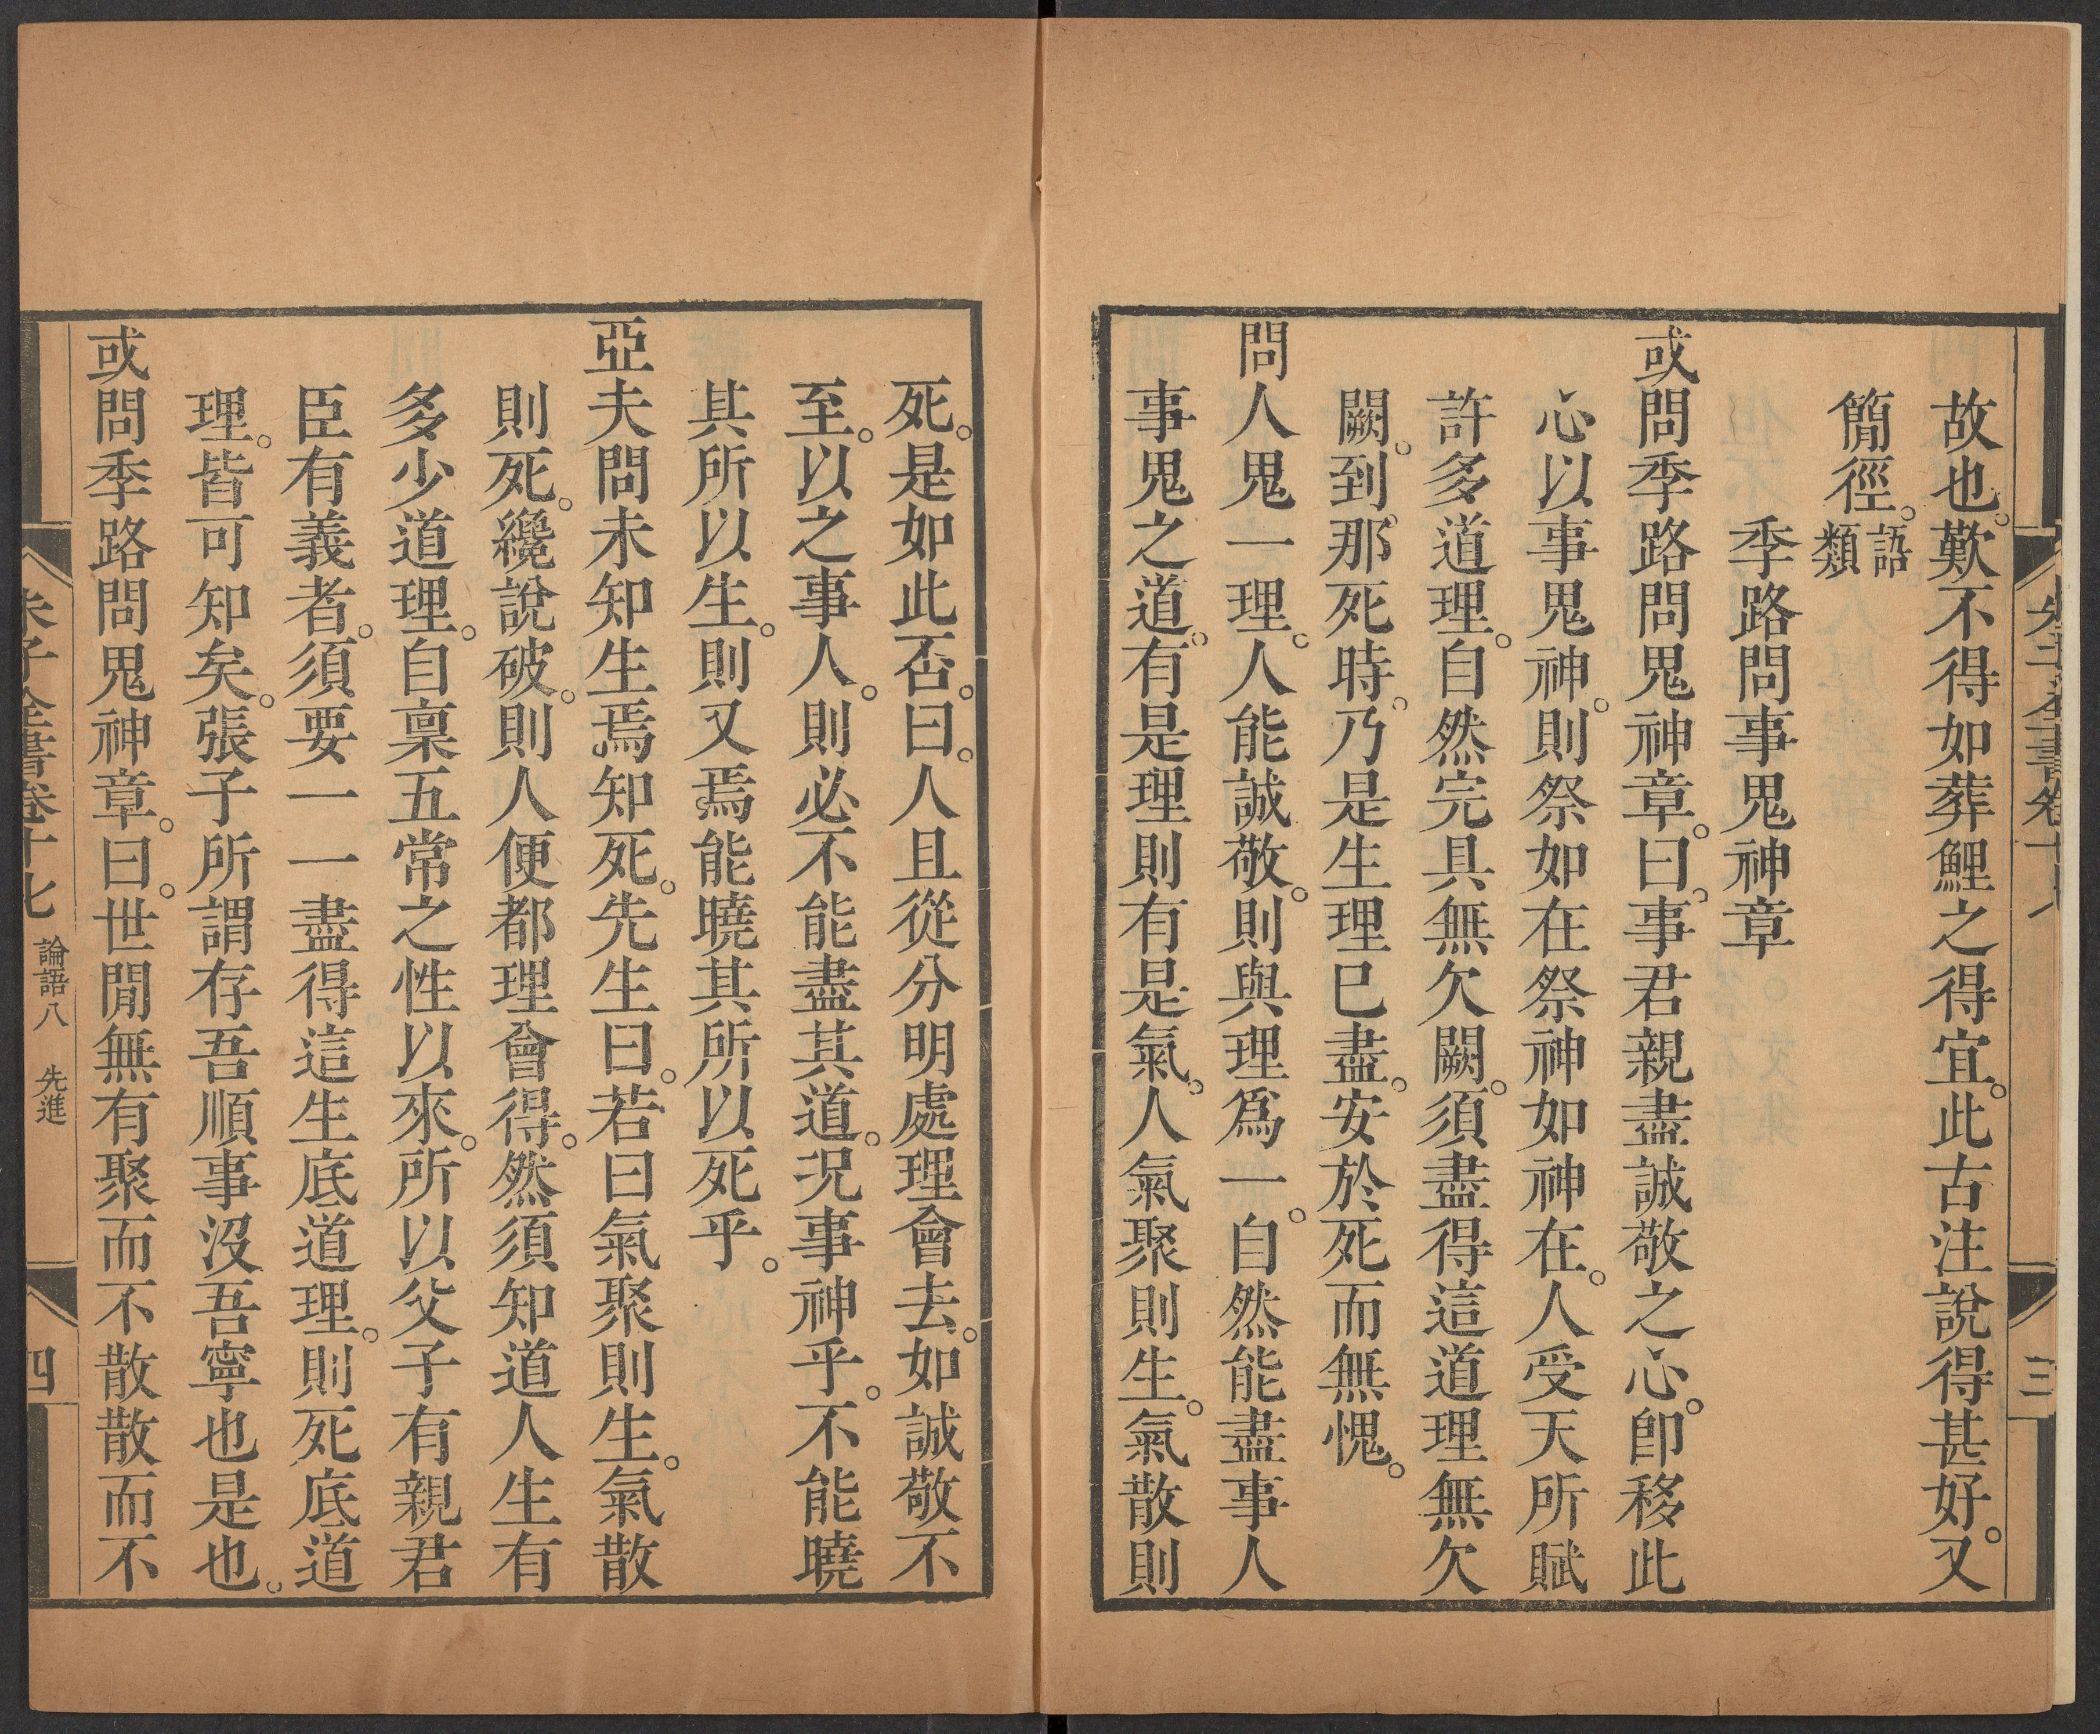 故也。歎不得如葬鯉之得宜。此古注說得甚好。又
簡徑。語類
季路問事鬼神章
或問季路問鬼神章。曰。事君親盡誠敬之心。卽移此
心以事鬼神。則祭如在祭神如神在。人受天所賦
許多道理。自然完具無欠闕。須盡得這道理無欠
闕。到那死時。乃是生理已盡。安於死而無愧。
問人鬼一理。人能誠敬。則與理爲一。自然能盡事人
事鬼之道。有是理則有是氣。人氣聚則生。氣散則
死。是如此否。曰。人且從分明處理會去。如誠敬不
至。以之事人。則必不能盡其道。況事神乎。不能曉
其所以生。則又焉能曉其所以死乎。
亞夫問未知生焉知死。先生曰。若曰氣聚則生。氣散
則死。纔說破。則人便都理會得。然須知道人生有
多少道理。自稟五常之性以來。所以父子有親君
臣有義者。須要一一盡得這生底道理。則死底道
理。皆可知矣。張子所謂存吾順事沒吾寧也是也。
或問季路問鬼神章。曰。世閒無有聚而不散散而不
朱子全書卷十七 論語八 先進
四
三